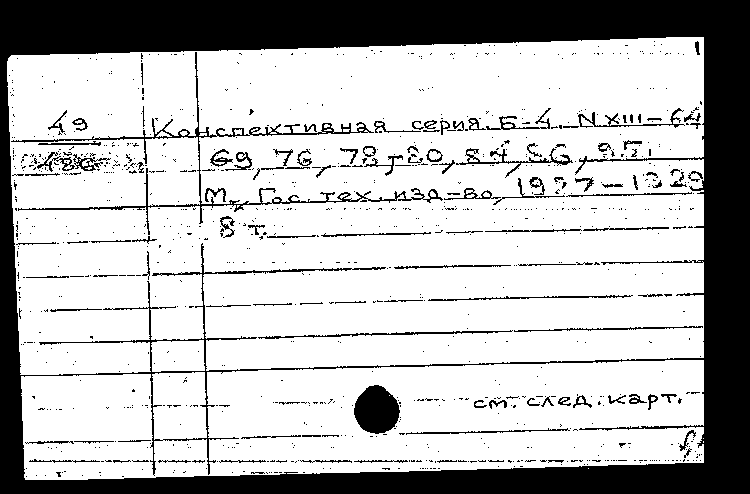 1
49
Конспективная серия. Б-4. N XIII-64
69, 76, 78-80, 84, 86, 95.
М., Гос. тех. изд-во, 1927-1929
8 т.
см. след. карт.